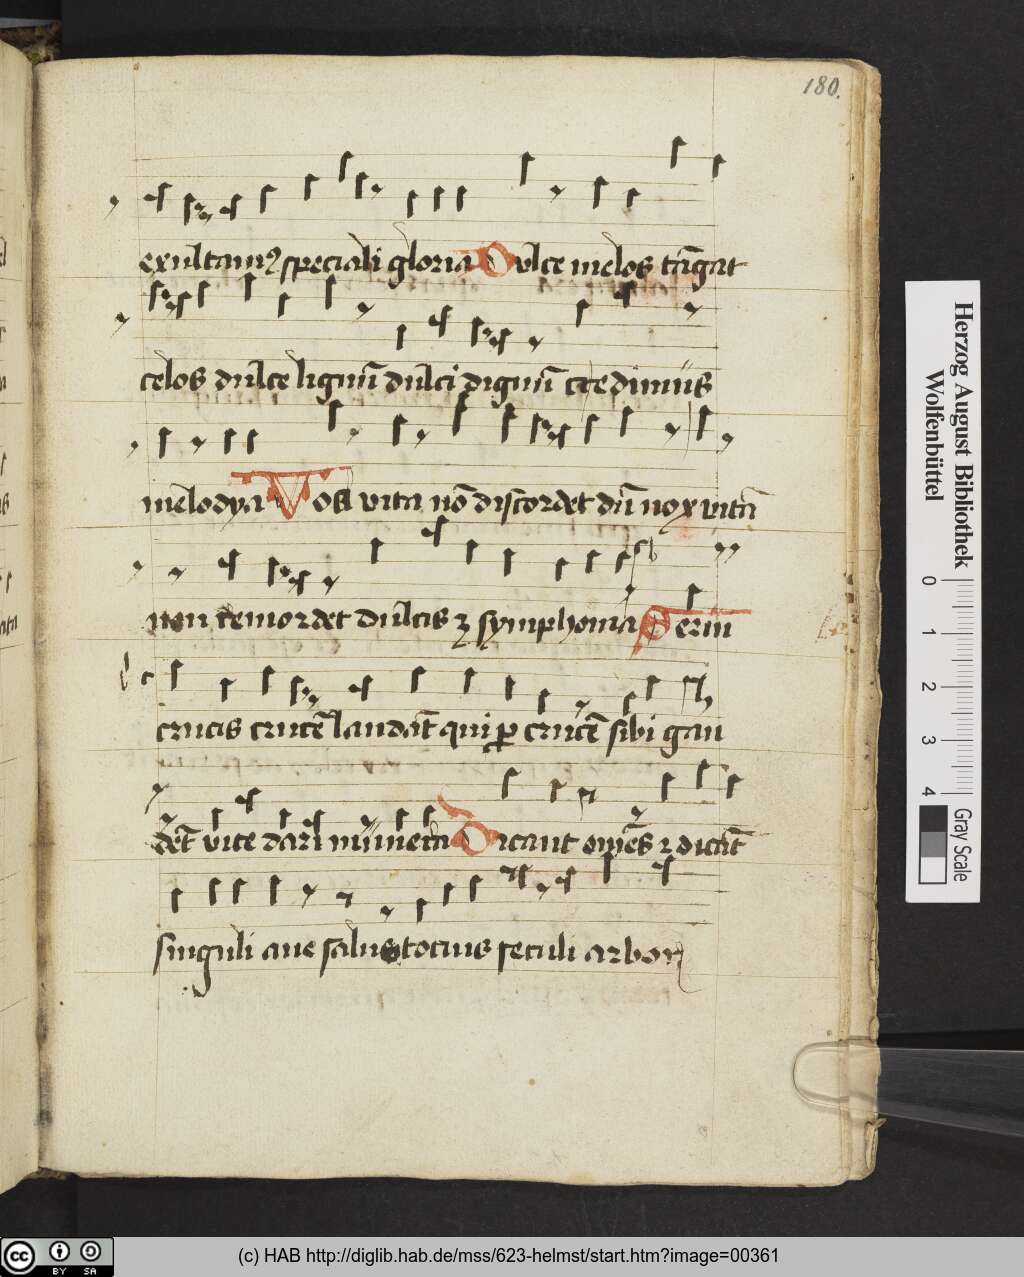 180.
exultamꝰ speciali gloria Dulce melos tāgat
celos dulce lignū dulci dignū credimus
melodya Vox vita nō discordet cū vox vitā
non remordet dulcis ꝫ symphonia Servi
crucis crucē laudāt qui ꝑ crucē sibi gau
dēt vite dari munera Dicant om̄es ⁊ dicāt
singuli aue salus tocius seculi arbor
Herzog August Bibliothek
Wolfenbüttel
0 1 2 3 4
Gray Scale
cc BY SA
(c) HAB http://diglib.hab.de/mss/623-helmst/start.htm?image=00361